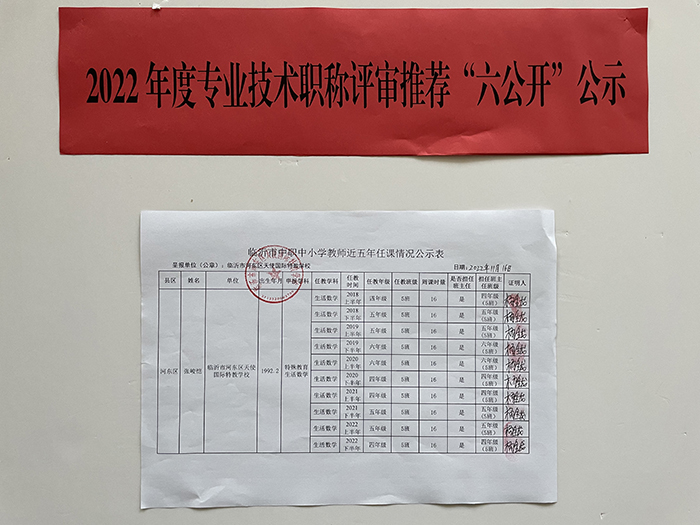 2022年度专业技术职称评审推荐“六公开”公示
临沂市中职中小学教师近五年任课情况公示表
呈报单位（公章）：临沂市河东区天使国际特教学校 日期：2022年11月16日
县区 姓名 单位 出生年月 申报学科 任教学科 任教时间 任教年级 任教班级 周课时量 是否担任班主任 担任班主任班级 证明人
河东区 张峻恺 临沂市河东区天使国际特教学校 1992.2 特殊教育生活数学
生活数学 2018上半年 四年级 5班 16 是 四年级（5班）
生活数学 2018下半年 五年级 5班 16 是 五年级（5班）
生活数学 2019上半年 五年级 5班 16 是 五年级（5班）
生活数学 2019下半年 六年级 5班 16 是 六年级（5班）
生活数学 2020上半年 六年级 5班 16 是 六年级（5班）
生活数学 2020下半年 四年级 5班 16 是 四年级（5班）
生活数学 2021上半年 四年级 5班 16 是 四年级（5班）
生活数学 2021下半年 五年级 5班 16 是 五年级（5班）
生活数学 2022上半年 五年级 5班 16 是 五年级（5班）
生活数学 2022下半年 四年级 5班 16 是 四年级（5班）